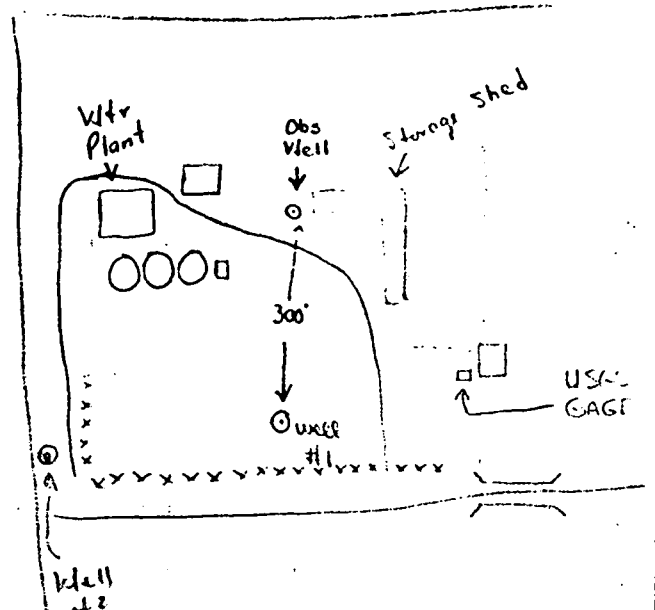 Wtr
Plant
Obs
Well
Storage Shed
300'
Well
#1
USGS
GAGE
Well
#2